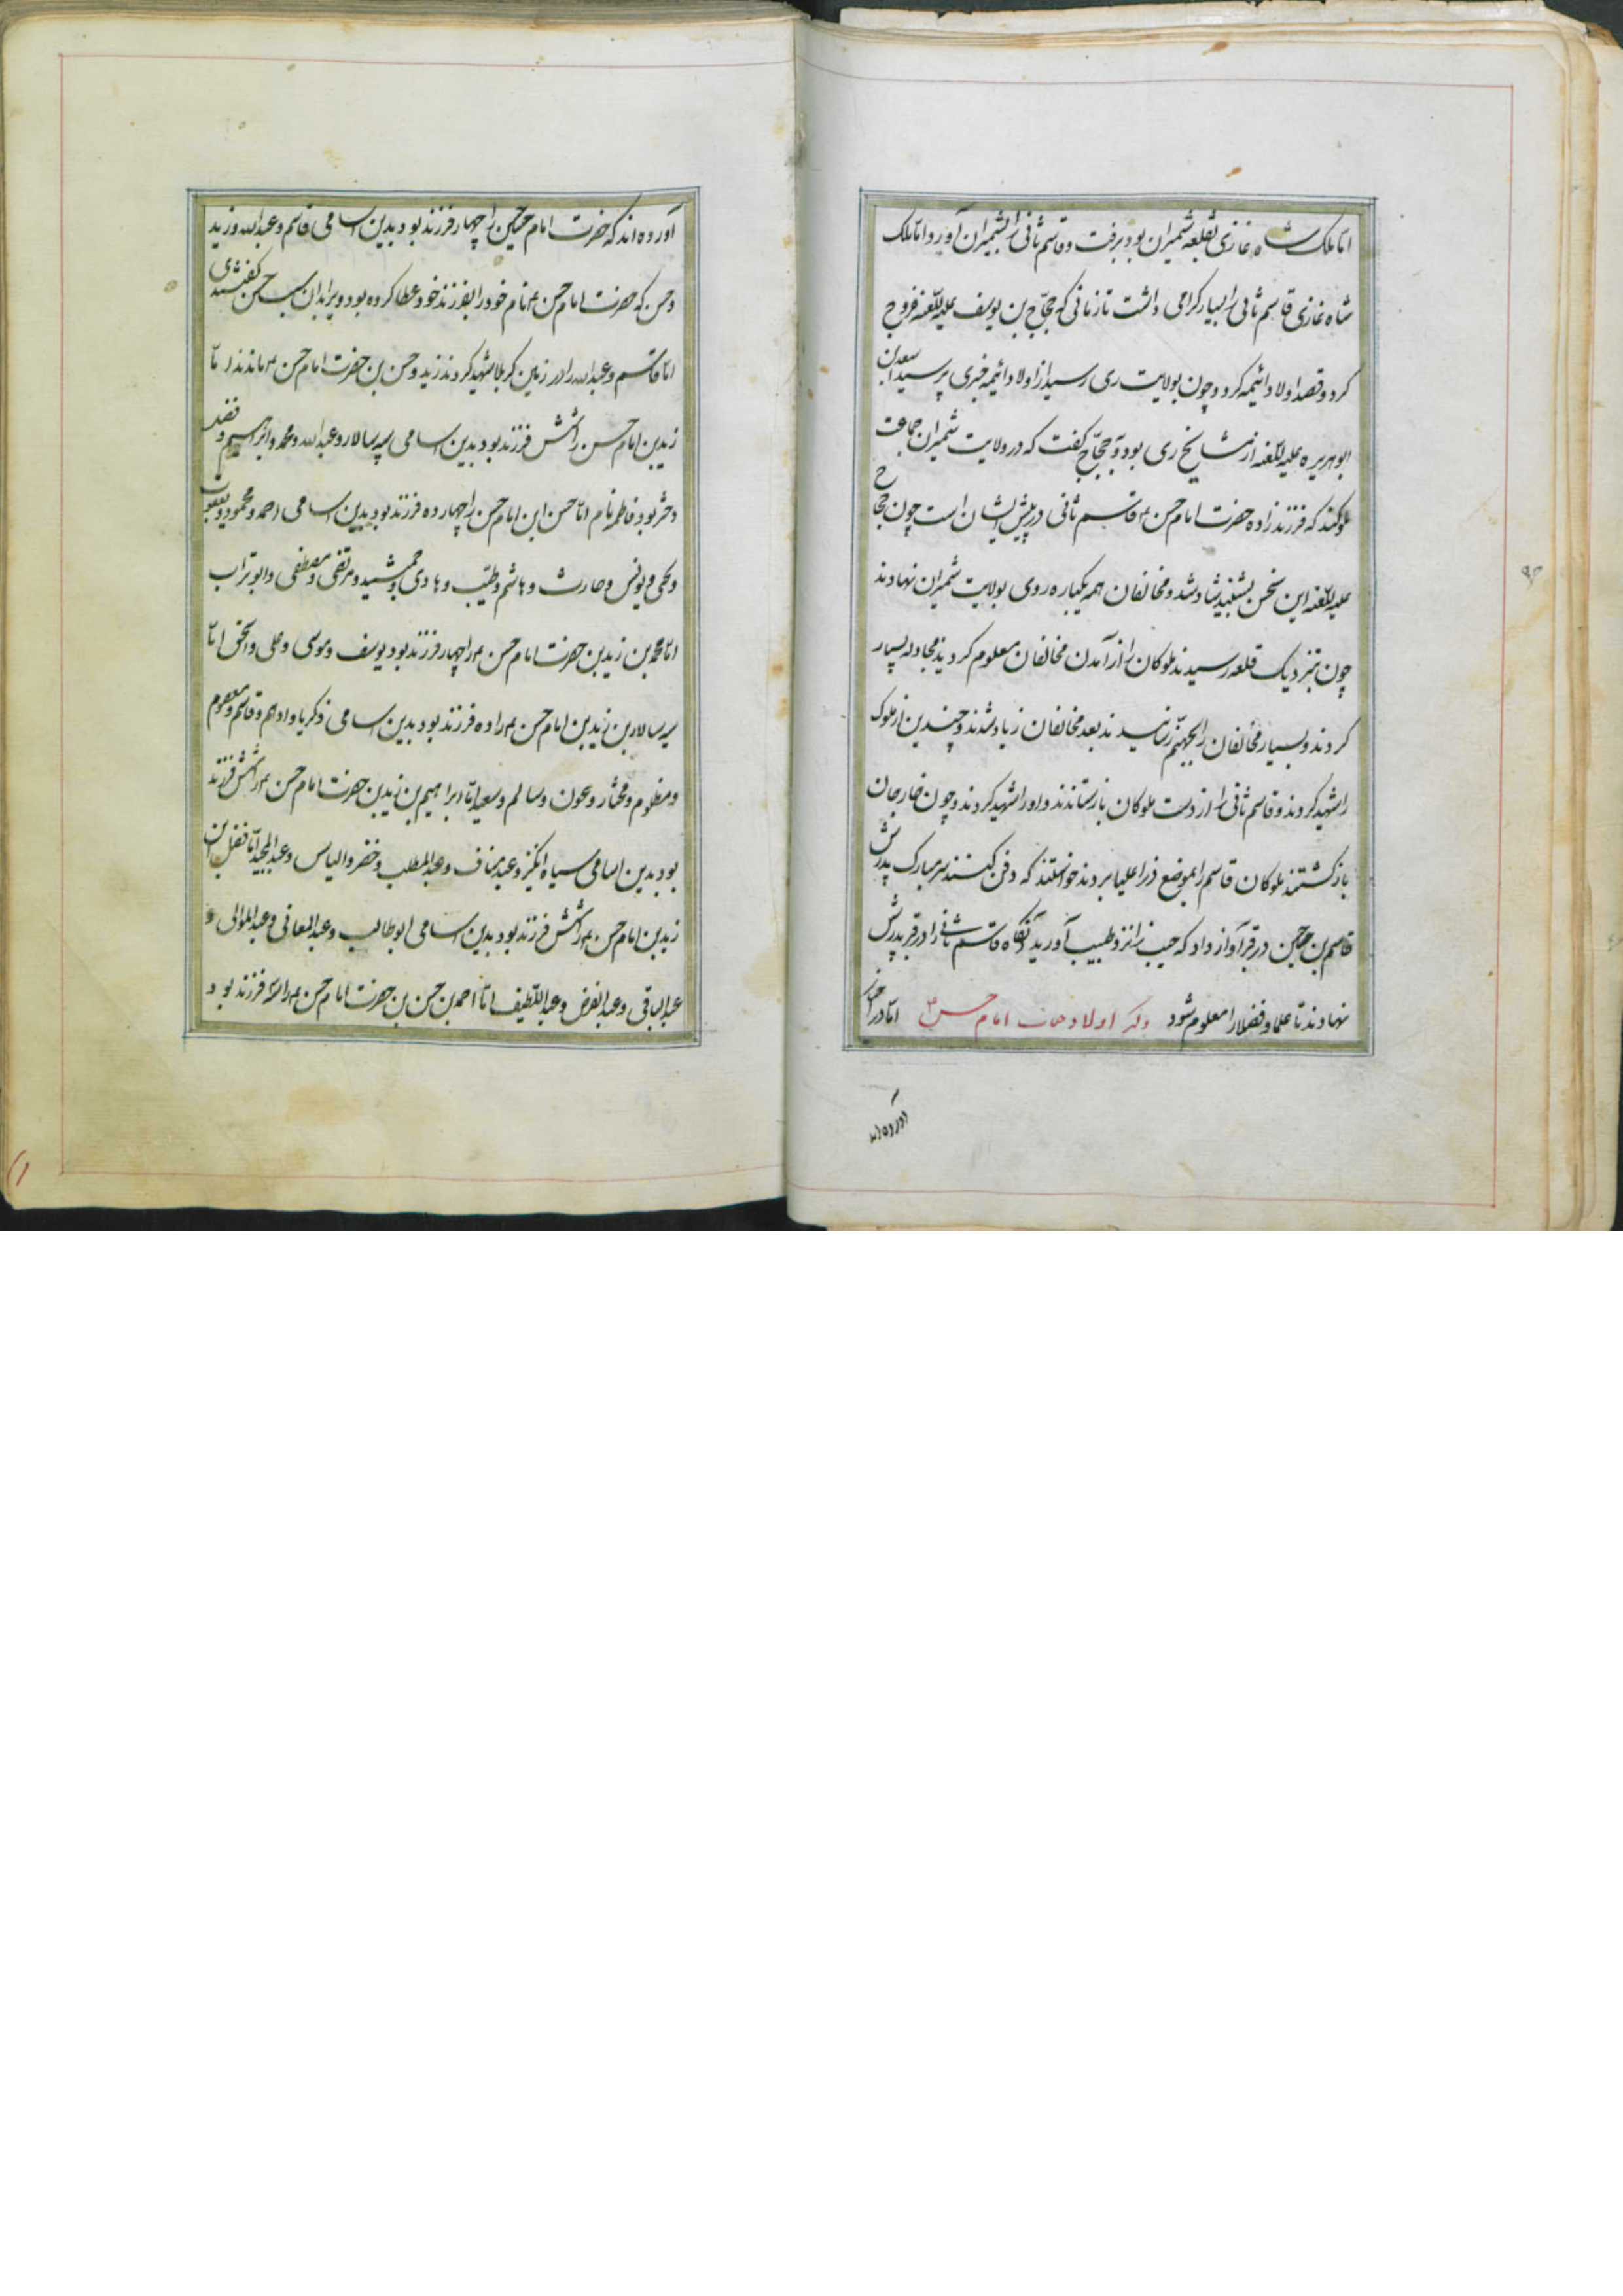 اتابلک شاه غازی بقلعه شمیران بود برفت و قاسم ثانی را بشمیران آورد و اتابلک
شاه غازی قاسم ثانی را بسیار کرامی داشت تا زمانی که حجّاج بن یوسف علیه اللّعنه خروج
کرد و قصد اولاد ائیمه کرد و چون بولایت ری رسید از اولاد ائیمه خبری پرسید سعد بن
ابو هریره علیه اللّعنه از مشایخ ری بود و بحجّاج کفت که در ولایت شمیران جماعت
ملوکند که فرزند زاده حضرت امام حسن ع قاسم ثانی در پیش ایشان است چون حجاج
علیه اللّعنه این سخن بشنید شاد شد و مخالفان همه بیکباره روی بولایت شمیران نهادند
چون بنزدیک قلعه رسیدند ملوکان را از آمدن مخالفان معلوم کردید مجادله بسیار
کردند و بسیار مخالفان را بجهنّم رسانیدند بعد مخالفان زیاد شدند و چندین از ملوک
را شهید کردند و قاسم ثانی را از دست ملوکان بازستاندند و او را شهید کردند و چون خارجان
بازکشتند ملوکان قاسم را بموضع ذرا علیا بردند خواستند که دفن کنند سر مبارک پدرش
قاسم بن حسن در قبر آواز داد که حبیب را نزد طبیب آورید آنکاه قاسم ثانی را در قبر پدرش
نهادند تا علما و فضلا را معلوم شود ذکر اولاد حضرت امام حسن ع امّا در اخبار
آورده اند
آورده اند که حضرت امام حسین را چهار فرزند بود بدین اسامی قاسم و عبدالله و زید
و حسن که حضرت امام حسن ع نام خود را بفرزند خود عطا کرده بود و برا بدان سبب حسن کفتندی
امّا قاسم و عبدالله را در زمین کربلا شهید کردند زید و حسن بن حضرت امام حسن ع ماندند امّا
زید بن امام حسن را شش فرزند بود بدین اسامی سپه سالار و عبدالله و محمد و ابراهیم و فضل
دختر بود فاطمه نام امّا حسن ابن امام حسن را چهارده فرزند بود بدین اسامی احمد و محمود و یعقوب
و یحیی و یونس و حارث و هاشم و طیّب و هادی و جمشید و مرتضی و مصطفی و ابو تراب
امّا محمد بن زید بن حضرت امام حسن ع را چهار فرزند بود یوسف و موسی و علی و اسحق امّا
سپه سالار بن زید بن امام حسن ع را ده فرزند بود بدین اسامی ذکریا و ادهم و قاسم و معصوم
و مظلوم و مختار و عون و سالم و سعید امّا ابراهیم بن زید بن حضرت امام حسن ع را شش فرزند
بود بدین اسامی سیاه انکیز و عبد مناف و عبدالمطلب و خضر و الیاس و عبدالمجید امّا فضل ابن
زید بن امام حسن ع را شش فرزند بود بدین اسامی ابو طالب و عبدالمعانی و عبدالموالی و
عبدالباقی و عبدالفرض و عبداللّطیف امّا احمد بن حسن بن حضرت امام حسن ع را فرزند بود